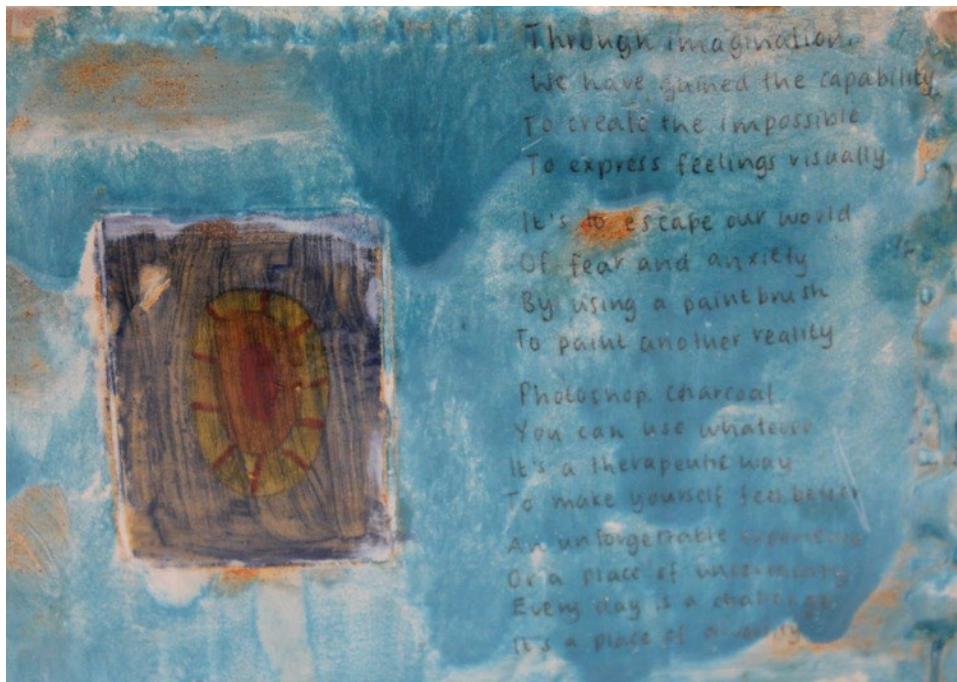 Through imagination,
We have gained the capability
To create the impossible
To express feelings visually
It's to escape our world
Of fear and anxiety
By using a paintbrush
To paint another reality
Photoshop. Charcoal.
You can use whatever
It's a therapeutic way
To make yourself feel better
An unforgettable experience
Or a place of uncertainty
Every day is a challenge
It's a place of